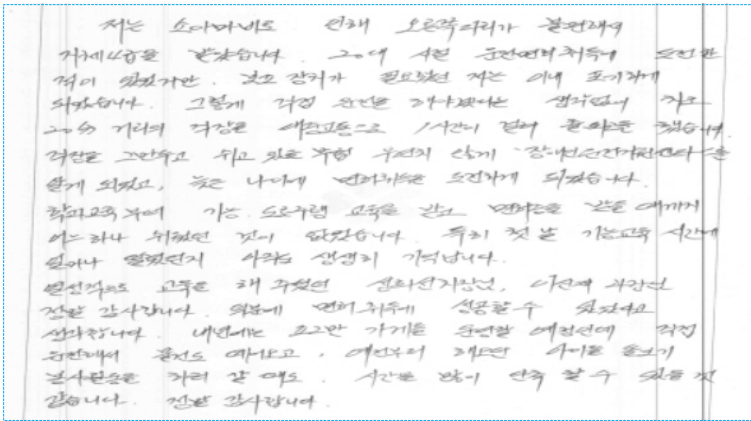 저는 소아마비로 인해 오른쪽다리가 불편해서
지체4급을 받았습니다. 20대 시절 운전면허취득에 도전한
적이 있었지만, 보조 장치가 필요했던 저는 이내 포기하게
되었습니다. 그렇게 직접 운전을 해야겠다는 생각없이 자차
20분 거리의 직장을 대중교통으로 1시간이 걸려 출퇴근을 했습니다.
직장을 그만두고 쉬고 있을 무렵 우연치 않게 "장애인운전지원센터"를
알게 되었고, 늦은 나이에 면허취득을 도전하게 되었습니다.
학과교육부터 기능, 도로주행 교육을 받고 면허증을 받을 때까지
어느하나 쉬웠던 것이 없었습니다. 특히 첫 날 기능교육 시간에
얼마나 떨렸던지 아직도 생생히 기억합니다.
열성적으로 교육을 해 주셨던 과장님
정말 감사합니다. 덕분에 면허취득에 성공할 수 있었다고
생각합니다. 내년에는 조그만 가게를 운영할 예정인데 직접
운전해서 물건도 떼어오고, 예전부터 해오던 아이들 돌보기
봉사활동을 하러 갈 때도, 시간을 많이 단축 할 수 있을 것
같습니다. 정말 감사합니다.